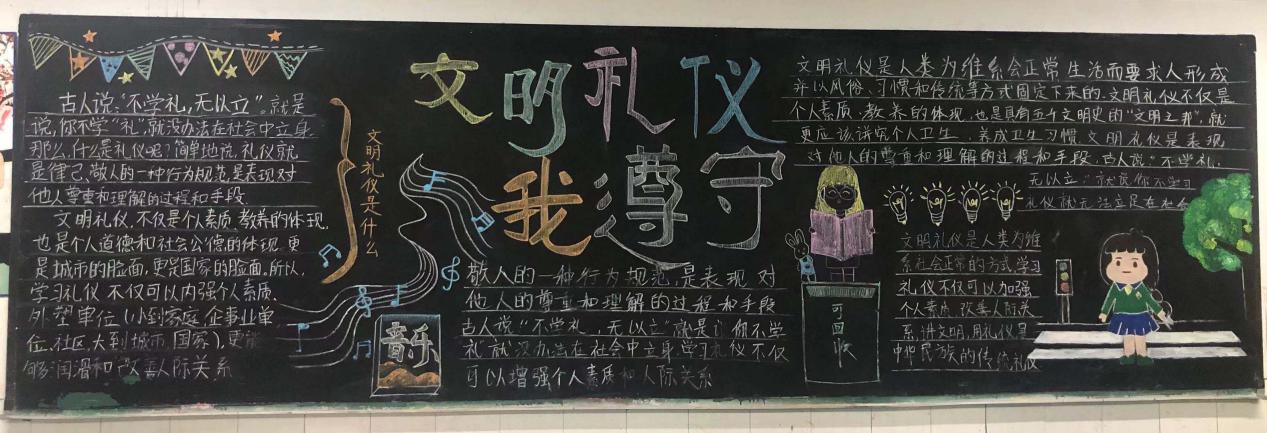 文明礼仪
我遵守
古人说:“不学礼,无以立”。就是
说,你不学“礼”,就没办法在社会中立身。
那么,什么是礼仪呢?简单地说,礼仪就
是律己、敬人的一种行为规范,是表现对
他人尊重和理解的过程和手段
文明礼仪,不仅是个人素质、教养的体现,
也是个人道德和社会公德的体现。更
是城市的脸面,更是国家的脸面。所以,
学习礼仪不仅可以内强个人素质、
外塑单位(小到家庭、企事业单
位、社区,大到城市、国家),更能
够润滑和改善人际关系
文明礼仪是什么
音乐
敬人的一种行为规范,是表现对
他人的尊重和理解的过程和手段
古人说“不学礼,无以立”就是说你不学
礼就没办法在社会中立身,学习礼仪不仅
可以增强个人素质和人际关系
可回收
文明礼仪是人类为维系会正常生活而要求人形成
并以风俗、习惯和传统等方式固定下来的.文明礼仪不仅是
个人素质、教养的体现,也是具有五千文明史的“文明之邦”,就
更应该讲究个人卫生,养成卫生习惯,文明礼仪是表现
对他人的尊重和理解的过程和手段,古人说“不学礼,
无以立”就说你不学习
礼仪就无法立足在社会
文明礼仪是人类为维
系社会正常的方式学习
礼仪不仅可以加强
个人素质,改善人际关
系,讲文明,用礼仪是
中华民族的传统礼仪